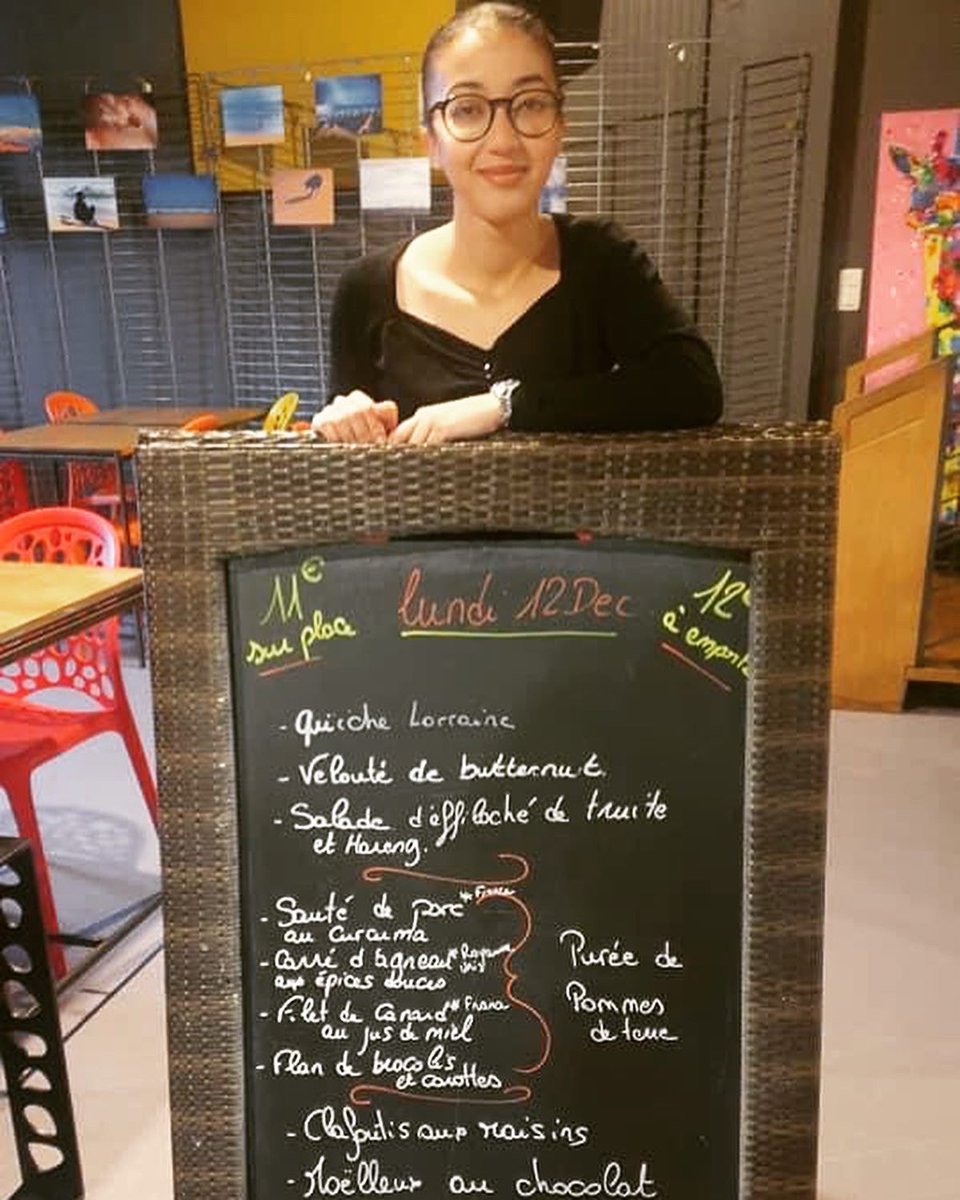 11€
sur place
lundi 12 Dec
12€
à emporte
- Quiche Lorraine
- Velouté de butternut.
- Salade d'éffiloché de truite
et Hareng.
- Sauté de porc *France
au curcuma
- Carré d'agneau *Royaume
Uni
aux épices douces
- Filet de Canard ** France
au jus de miel
- Flan de brocolis
et carottes
Purée de
Pommes
de terre
- Clafoutis aux raisins
- Moëlleux au chocolat